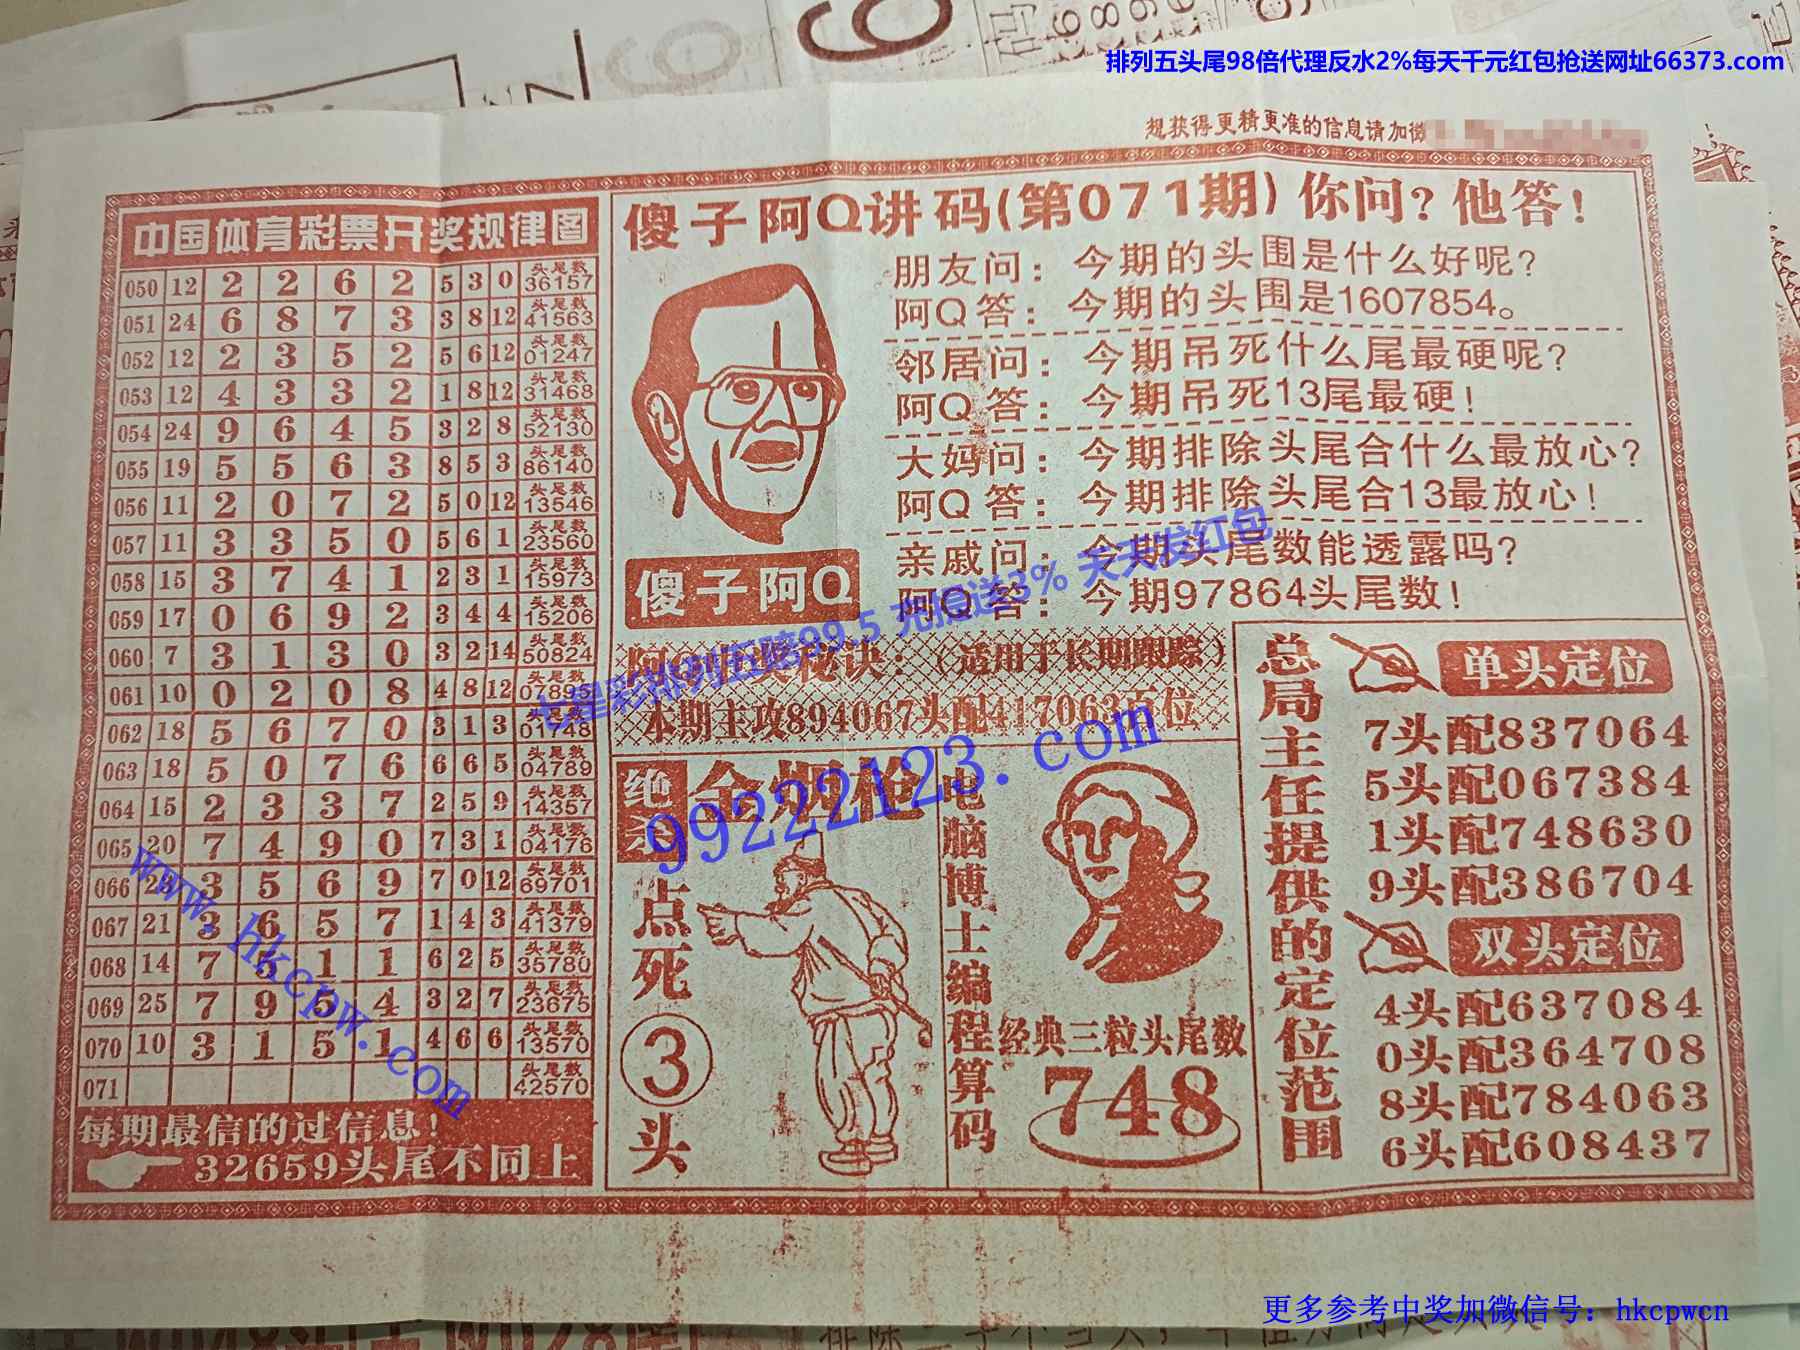 排列五头尾98倍代理反水2%每天千元红包抢送网址66373.com
想获得更精更准的信息请加微
中国体育彩票开奖规律图
050 12 2 2 6 2 5 3 0 头尾数 36157
051 24 6 8 7 3 3 8 12 头尾数 41563
052 12 2 3 5 2 5 6 12 头尾数 01247
053 12 4 3 3 2 1 8 12 头尾数 31468
054 24 9 6 4 5 3 2 8 头尾数 52130
055 19 5 5 6 3 8 5 3 头尾数 86140
056 11 2 0 7 2 5 0 12 头尾数 13546
057 11 3 3 5 0 5 6 1 头尾数 23560
058 15 3 7 4 1 2 3 1 头尾数 15973
059 17 0 6 9 2 3 4 4 头尾数 15206
060 7 3 1 3 0 3 2 14 头尾数 50824
061 10 0 2 0 8 4 8 12 头尾数 07895
062 18 5 6 7 0 3 1 3 头尾数 01748
063 18 5 0 7 6 6 6 5 头尾数 04789
064 15 2 3 3 7 2 5 9 头尾数 14357
065 20 7 4 9 0 7 3 1 头尾数 04176
066 23 3 5 6 9 7 0 12 头尾数 69701
067 21 3 6 5 7 1 4 3 头尾数 41379
068 14 7 5 1 1 6 2 5 头尾数 35780
069 25 7 9 5 4 3 2 7 头尾数 23675
070 10 3 1 5 1 4 6 6 头尾数 13570
071 头尾数 42570
每期最信的过信息!
32659头尾不同上
傻子阿Q讲码(第071期)你问?他答!
朋友问:今期的头围是什么好呢?
阿Q答:今期的头围是1607854。
邻居问:今期吊死什么尾最硬呢?
阿Q答:今期吊死13尾最硬!
大妈问:今期排除头尾合什么最放心?
阿Q答:今期排除头尾合13最放心!
亲戚问:今期头尾数能透露吗?
阿Q答:今期97864头尾数!
傻子阿Q
秘诀:(适用于长期跟踪)
本期主攻894067头配417063百位
七星彩排列五赔99.5 充值送3% 天天发红包
99222123.com
www.hkcpw.com
绝杀
金烟枪
点死
③
头
电脑博士编程算码
经典三粒头尾数
748
总局主任提供的定位范围
单头定位
7头配837064
5头配067384
1头配748630
9头配386704
双头定位
4头配637084
0头配364708
8头配784063
6头配608437
更多参考中奖加微信号:hkcpwcn